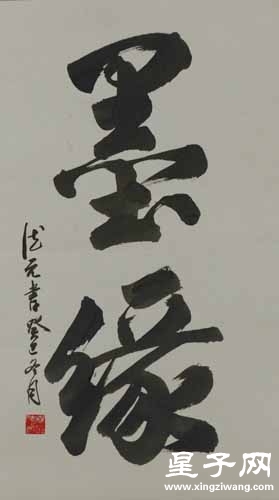 墨缘
德元书癸巳冬月
星子网
www.xingziwang.com